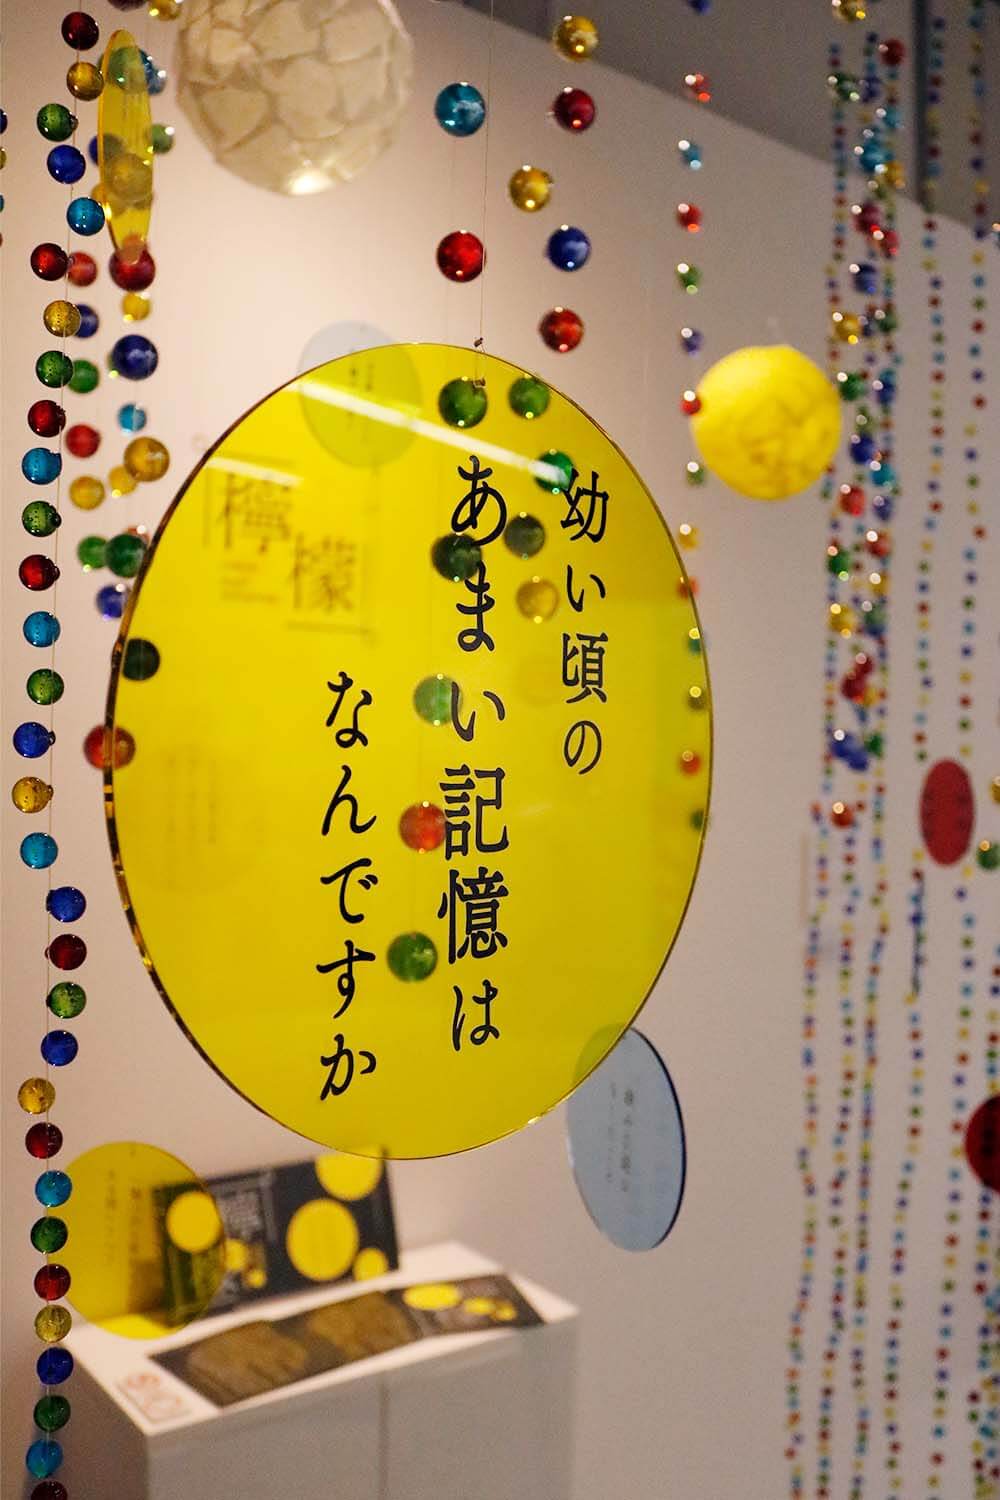 幼い頃の
あまい記憶は
なんですか
檸檬